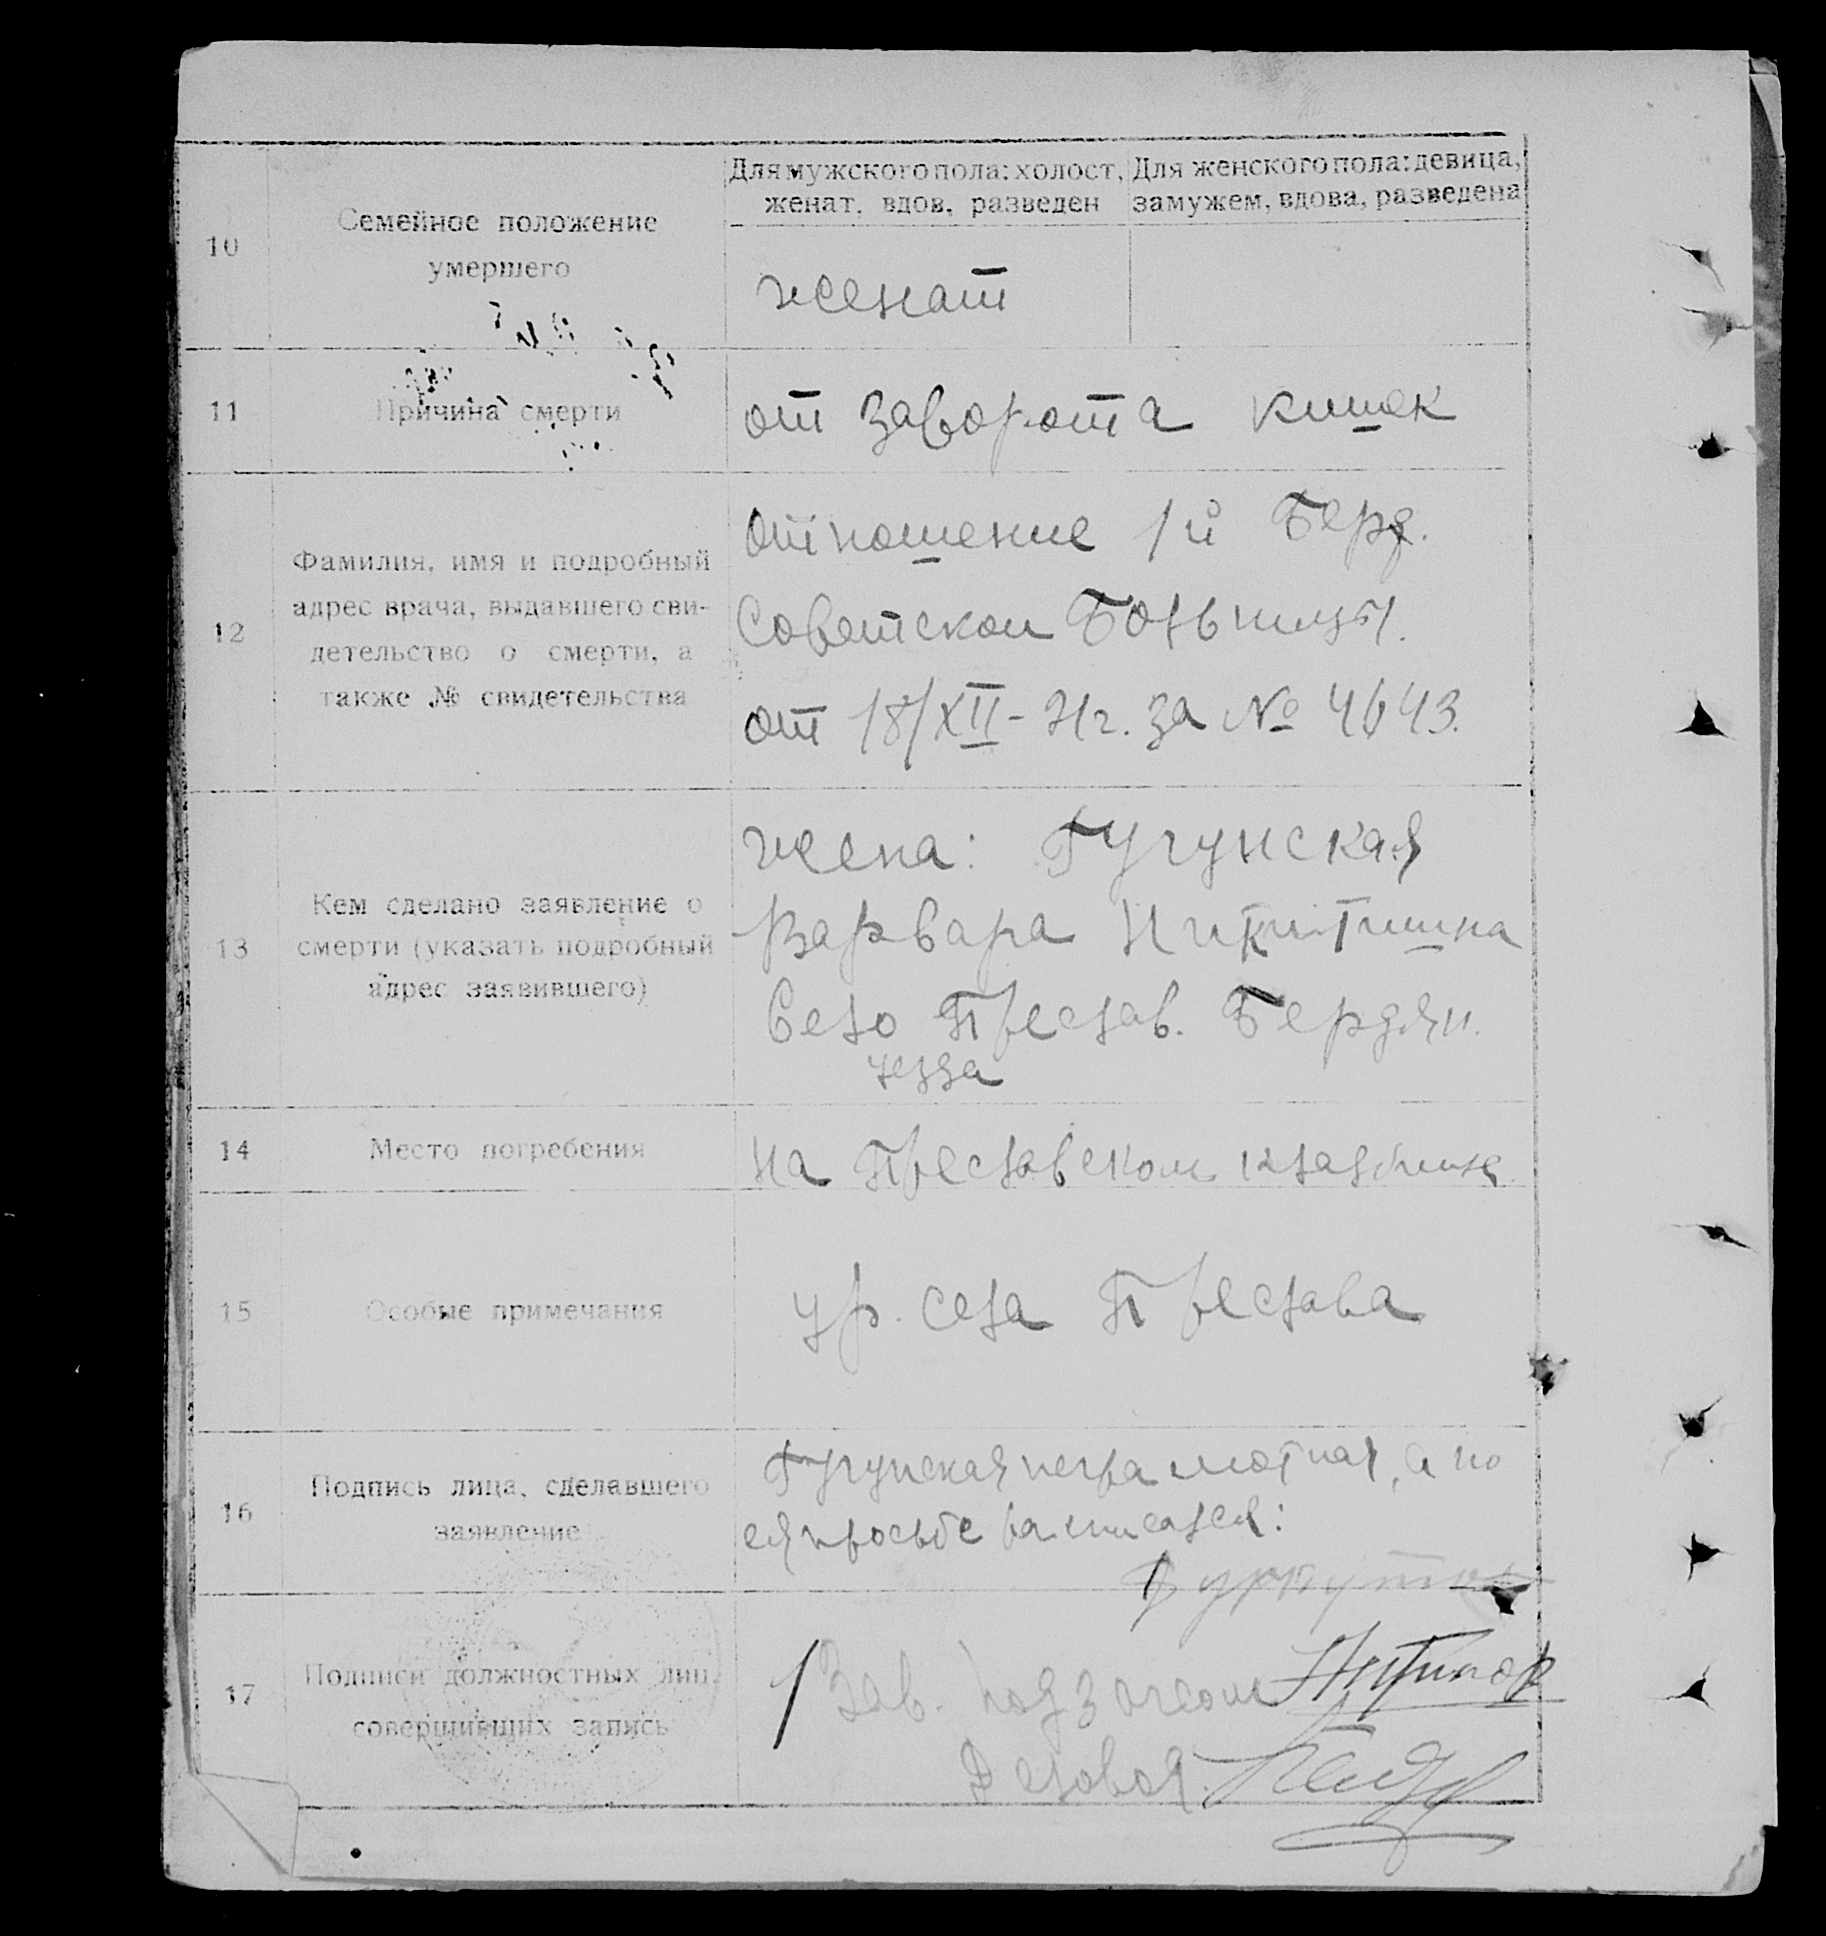 Для мужского пола: холост, женат, вдов, разведен
Для женского пола: девица, замужем, вдова, разведена
10
Семейное положение
умершего
женат
11
Причина смерти
от заворота кишек
12
Фамилия, имя и подробный
адрес врача, выдавшего сви-
детельство о смерти, а
также № свидетельства
отношение 1й Берд.
Советской Больницы.
от 18/XII- г. за №
13
Кем сделано заявление о
смерти (указать подробный
адрес заявившего)
жена: Гугунская
Варвара Никитишна
Село Преслав. Бердян.
уезда
14
Место погребения
на Преславском кладбище
15
Особые примечания
ур. села Преслава
16
Подпись лица, сделавшего
заявление
Гугунская неграмотная, а по
ея просьбе расписался:
17
Подписи должностных лиц,
совершивших запись
Зав. подзагсом
Деловод.